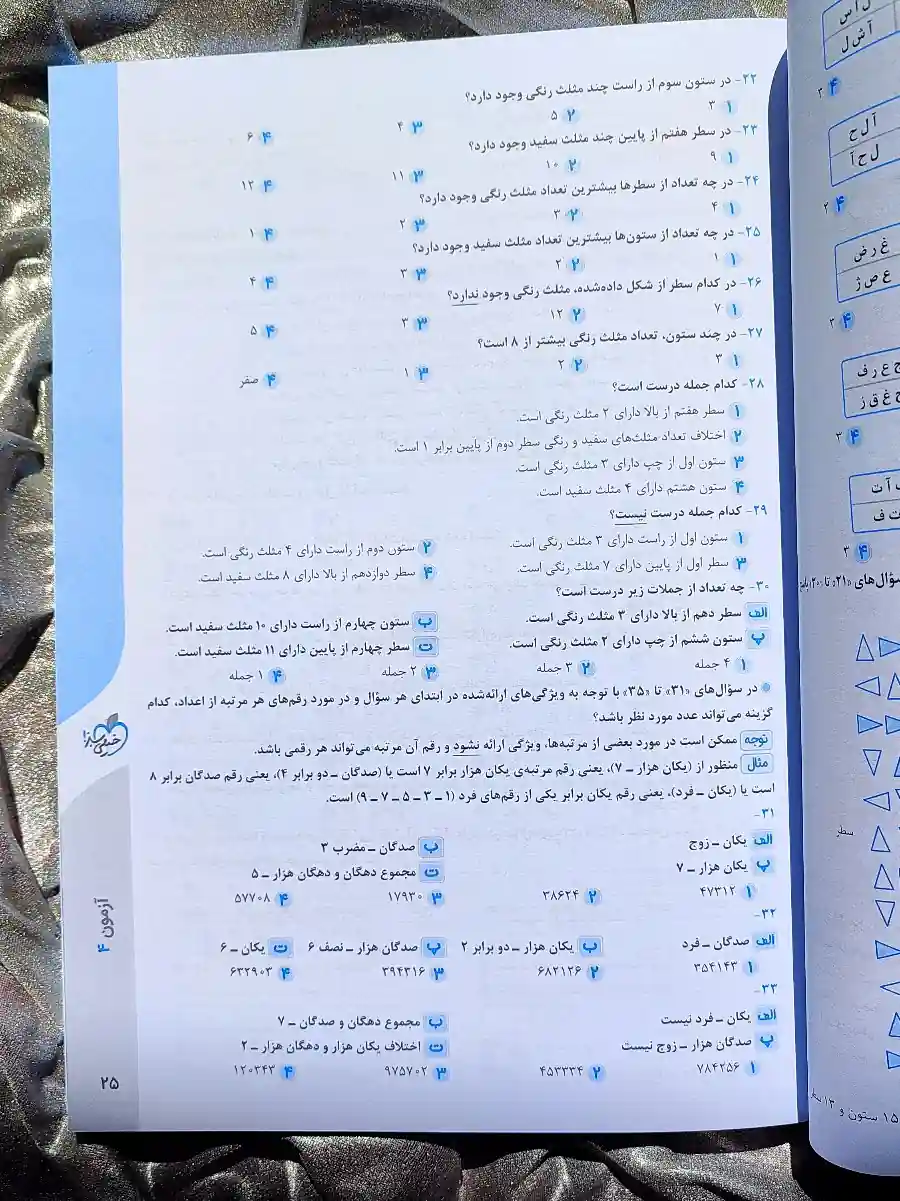 ۲۲- در ستون سوم از راست چند مثلث رنگی وجود دارد؟
۱ ۳ ۲ ۵ ۳ ۴ ۴ ۶
۲۳- در سطر هفتم از پایین چند مثلث سفید وجود دارد؟
۱ ۹ ۲ ۱۰ ۳ ۱۱ ۴ ۱۲
۲۴- در چه تعداد از سطرها بیشترین تعداد مثلث رنگی وجود دارد؟
۱ ۴ ۲ ۳ ۳ ۲ ۴ ۱
۲۵- در چه تعداد از ستون‌ها بیشترین تعداد مثلث سفید وجود دارد؟
۱ ۱ ۲ ۲ ۳ ۳ ۴ ۴
۲۶- در کدام سطر از شکل داده‌شده، مثلث رنگی وجود ندارد؟
۱ ۷ ۲ ۱۲ ۳ ۳ ۴ ۵
۲۷- در چند ستون، تعداد مثلث رنگی بیشتر از ۸ است؟
۱ ۳ ۲ ۲ ۳ ۱ ۴ صفر
۲۸- کدام جمله درست است؟
۱ سطر هفتم از بالا دارای ۲ مثلث رنگی است.
۲ اختلاف تعداد مثلث‌های سفید و رنگی سطر دوم از پایین برابر ۱ است.
۳ ستون اول از چپ دارای ۳ مثلث رنگی است.
۴ ستون هشتم دارای ۴ مثلث سفید است.
۲۹- کدام جمله درست نیست؟
۱ ستون اول از راست دارای ۳ مثلث رنگی است. ۲ ستون دوم از راست دارای ۴ مثلث رنگی است.
۳ سطر اول از پایین دارای ۷ مثلث رنگی است. ۴ سطر دوازدهم از بالا دارای ۸ مثلث سفید است.
۳۰- چه تعداد از جملات زیر درست است؟
الف سطر دهم از بالا دارای ۳ مثلث رنگی است. ب ستون چهارم از راست دارای ۱۰ مثلث سفید است.
پ ستون ششم از چپ دارای ۲ مثلث رنگی است. ت سطر چهارم از پایین دارای ۱۱ مثلث سفید است.
۱ ۴ جمله ۲ ۳ جمله ۳ ۲ جمله ۴ ۱ جمله
● در سؤال‌های «۳۱» تا «۳۵» با توجه به ویژگی‌های ارائه‌شده در ابتدای هر سؤال و در مورد رقم‌های هر مرتبه از اعداد، کدام
گزینه می‌تواند عدد مورد نظر باشد؟
توجه ممکن است در مورد بعضی از مرتبه‌ها، ویژگی ارائه نشود و رقم آن مرتبه می‌تواند هر رقمی باشد.
مثال منظور از (یکان هزار ــ ۷)، یعنی رقم مرتبه‌ی یکان هزار برابر ۷ است یا (صدگان ــ دو برابر ۴)، یعنی رقم صدگان برابر ۸
است یا (یکان ــ فرد)، یعنی رقم یکان برابر یکی از رقم‌های فرد (۱ ــ ۳ ــ ۵ ــ ۷ ــ ۹) است.
۳۱-
الف یکان ــ زوج ب صدگان ــ مضرب ۳
پ یکان هزار ــ ۷ ت مجموع دهگان و دهگان هزار ــ ۵
۱ ۴۷۳۱۲ ۲ ۳۸۶۲۴ ۳ ۱۷۹۳۰ ۴ ۵۷۷۰۸
۳۲-
الف صدگان ــ فرد ب یکان هزار ــ دو برابر ۲ پ صدگان هزار ــ نصف ۶ ت یکان ــ ۶
۱ ۳۵۴۱۴۳ ۲ ۶۸۲۱۲۶ ۳ ۳۹۴۳۱۶ ۴ ۶۳۲۹۰۳
۳۳-
الف یکان ــ فرد نیست ب مجموع دهگان و صدگان ــ ۷
پ صدگان هزار ــ زوج نیست ت اختلاف یکان هزار و دهگان هزار ــ ۲
۱ ۷۸۴۲۵۶ ۲ ۴۵۳۳۳۴ ۳ ۹۷۵۷۰۲ ۴ ۱۲۰۳۴۳
خیلی سبز
آزمون ۴
۲۵
آش ل
۴ ۲
آ ل ح
ل ح آ
۴ ۲
غ ر ض
ع ص ژ
۴ ۳
ع ر ف
غ ق ز
۴ ۳
۴ ۳
سطر
۱۵ ستون و ۱۳